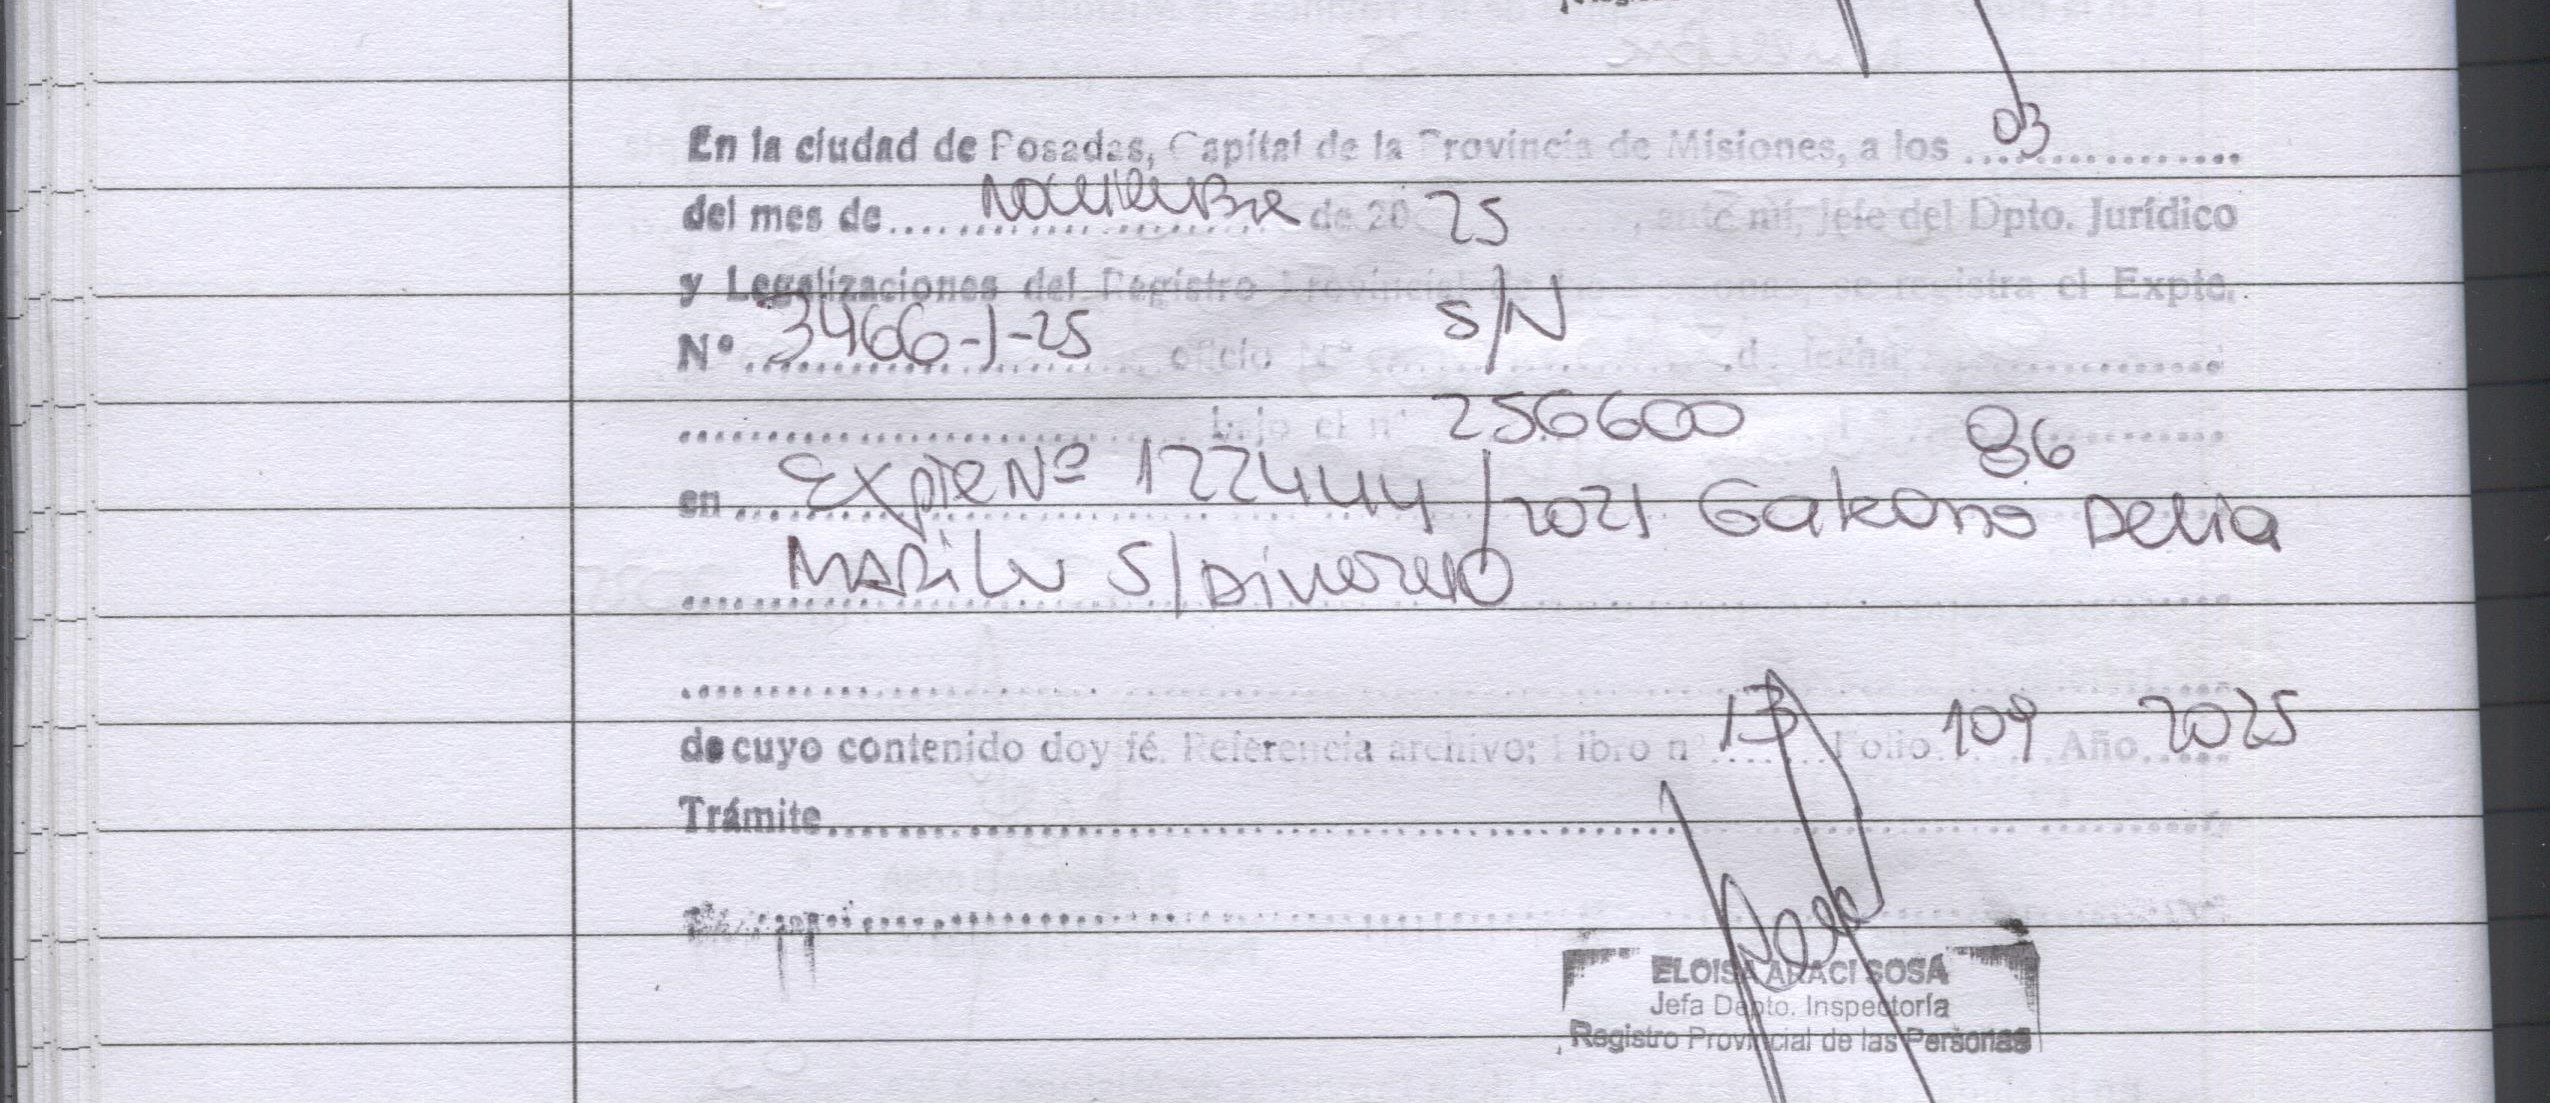 En la ciudad de Posadas, Capital de la Provincia de Misiones, a los 03
del mes de Noviembre de 20 25, ante mí, Jefe del Dpto. Jurídico
y Legalizaciones del Registro Provincial de las Personas, se registra el Expte.
Nº 3466-J-25 oficio Nº S/N d. fecha
bajo el nº 256600 Fº 86
en Expte Nº 122444/2021 Gakono Delia
Marilu S/Divorcio
de cuyo contenido doy fé. Referencia archivo: Libro nº 13 Folio 109 Año 2025
Trámite
ELOISA ARACI SOSA
Jefa Depto. Inspectoría
Registro Provincial de las Personas